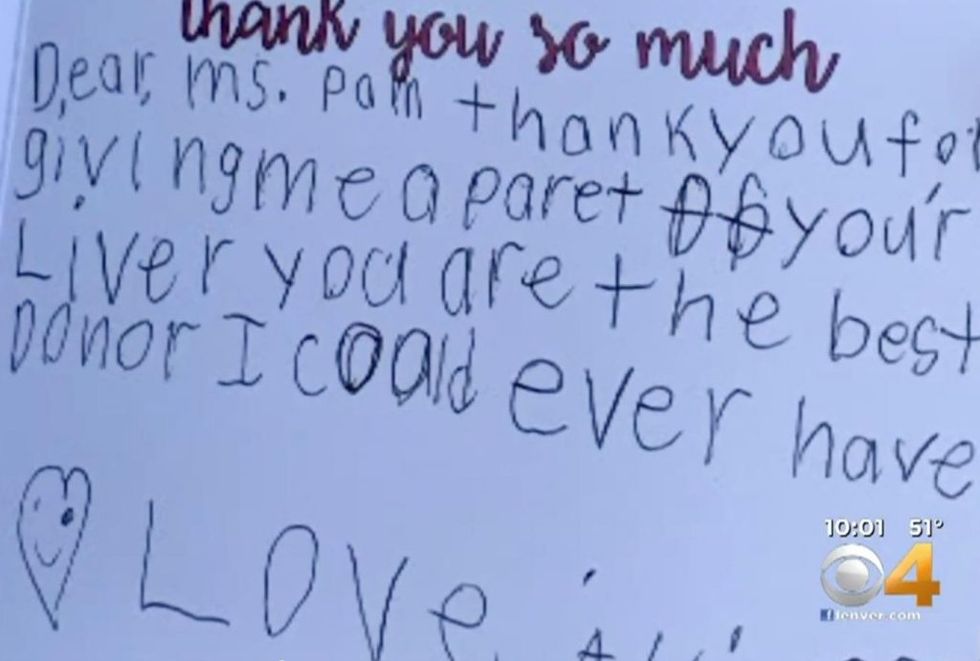 thank you so much
Dear, Ms. Pam thank you for
giving me a paret of your
Liver you are the best
Donor I coould ever have
Love
10:01 51°
4
fenver.com